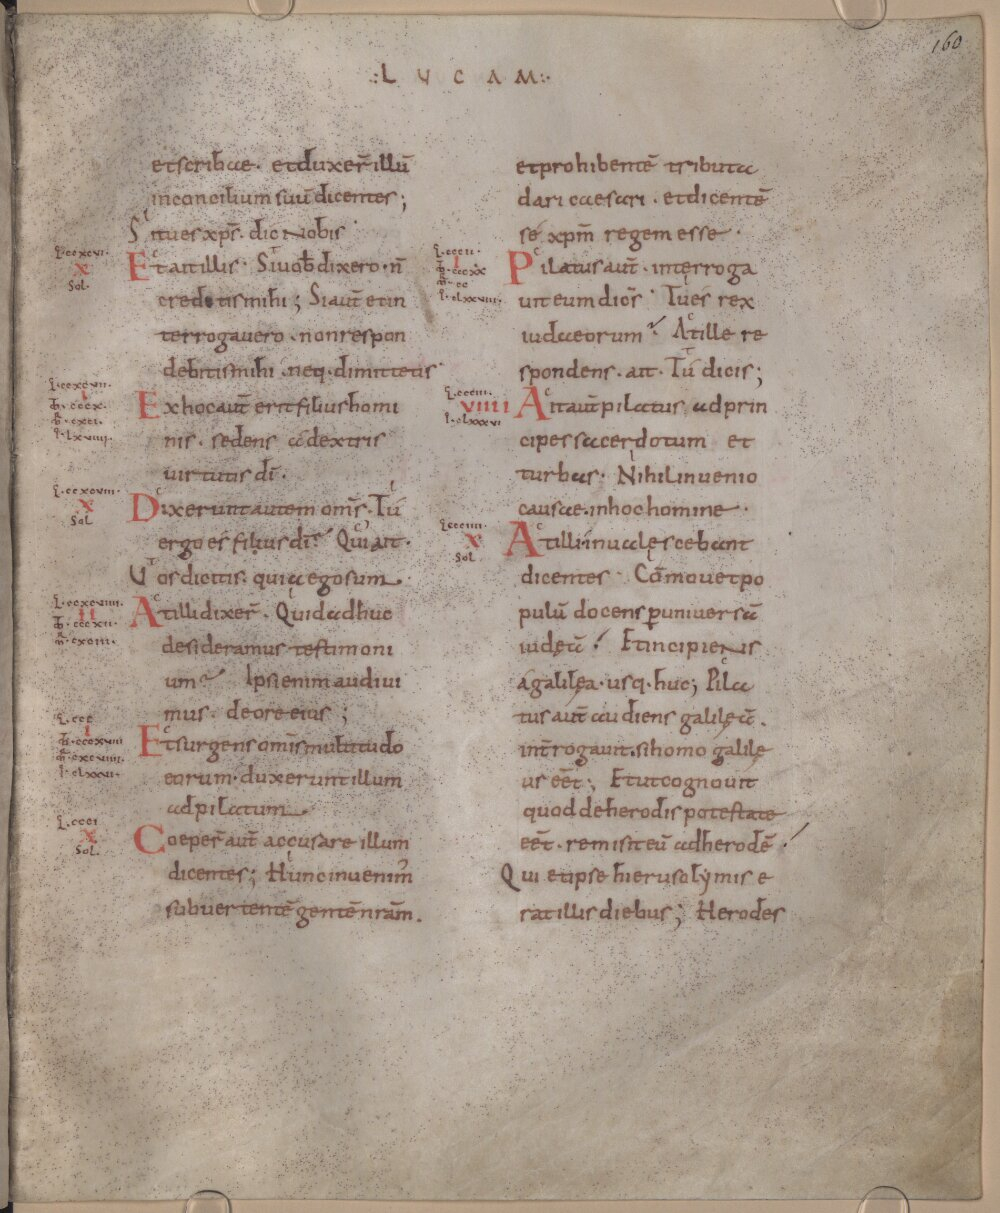 160
·:LUCAM:·
et scribae· et duxer̄ illū
in concilium suū dicentes;
Si tu es xp̄s· dic nobis·
L·ccxcvi·
X
Sol·
Et ait illis· Si uob̄ dixero· n̄
credetis mihi; Si aut̄ et in
terrogauero· non respon
debitis mihi· neq· dimittetis·
L·ccxcvii·
I
M̄·cccx·
Exhoc aut̄ erit filius homi
nis· sedens a dextris
uirtutis dī·
L·ccxcviii·
X
Sol
Dixerunt autem omīs· Tu
ergo es filius dī? Qui ait·
Uos dicitis· quia ego sum·
L·ccxcviiii·
II
M̄·cccxii·
At illi dixer̄· Quid adhuc
desideramus testimoni
um? Ipsi enim audiui
mus· de ore eius;
L·ccc
I
Et surgens omīs multitudo
eorum· duxerunt illum
ad pilatum·
L·ccci
X
Sol·
Coeper̄ aut̄ accusare illum
dicentes; Hunc inuenim᾽
subuertentē gentē nr̄am·
et prohibentē tributa
dari caesari· et dicentē
se xpm̄ regem esse·
L·cccii·
I
M̄·cccxx
Pilatus aut̄· interroga
uit eum dicēs· Tu es rex
iudaeorum? At ille re
spondens· ait· Tu dicis;
L·ccciii·
VIIII
I·clxxxvi
Ait aut̄ pilatus ad prin
cipes sacerdotum et
turbas· Nihil inuenio
causae· in hoc homine·
L·ccciiii·
X
Sol
At illi inualęscebant
dicentes· Cōmouet po
pulū docens p̱ uniuersā
iudęā! Et incipiens
a galilęa· usq· huc; Pila
tus aut̄ audiens galilęā·
int̄rogauit· si homo galilę
us eēt; Et ut cognouit
quod de herodis potestate
eēt· remisit eū ad herodē!
Qui et ipse hierusolymis e
rat illis diebus; Herodes